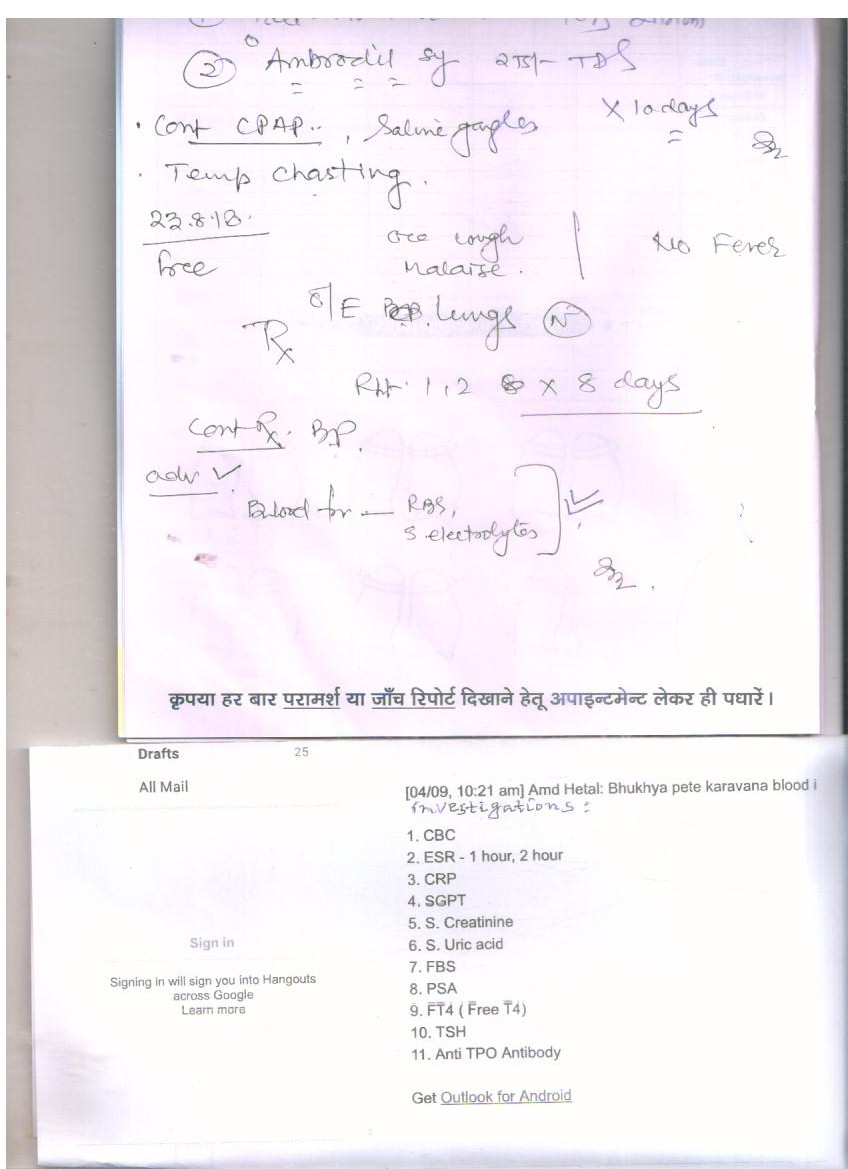 ② Ambrodil sy TDS
X 10 days
. Cont CPAP.. , Saline gargles
. Temp Chasting.
23.8.18.
free
Occ cough
Malaise.
No Fever
O/E Lungs N
Rx
1,2 x 8 days
Cont Rx. BP.
adv ✓
Blood for — RBS,
S electrolytes
कृपया हर बार परामर्श या जाँच रिपोर्ट दिखाने हेतू अपाइन्टमेन्ट लेकर ही पधारें।
Drafts 25
All Mail
[04/09, 10:21 am] Amd Hetal: Bhukhya pete karavana blood i
investigations :
1. CBC
2. ESR - 1 hour, 2 hour
3. CRP
4. SGPT
5. S. Creatinine
6. S. Uric acid
7. FBS
8. PSA
9. FT4 ( Free T4)
10. TSH
11. Anti TPO Antibody
Sign in
Signing in will sign you into Hangouts
across Google
Learn more
Get Outlook for Android